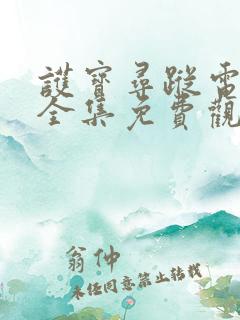 護寶尋蹤電
全集免費觀
翁仲
未經同意禁止轉載